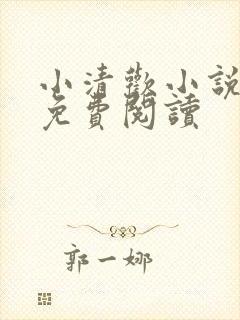 小清歡小說
免費閱讀
郭一娜